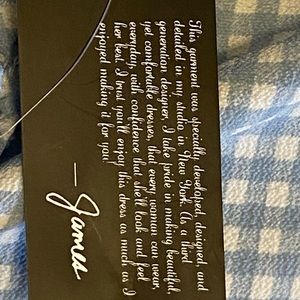 This garment was specially developed, designed, and
detailed in my studio in New York. As a third
generation designer, I take pride in making beautiful,
yet comfortable dresses, that every woman can wear,
everyday, with confidence that she'll look and feel
her best. I trust you'll enjoy this dress as much as I
enjoyed making it for you!
— James